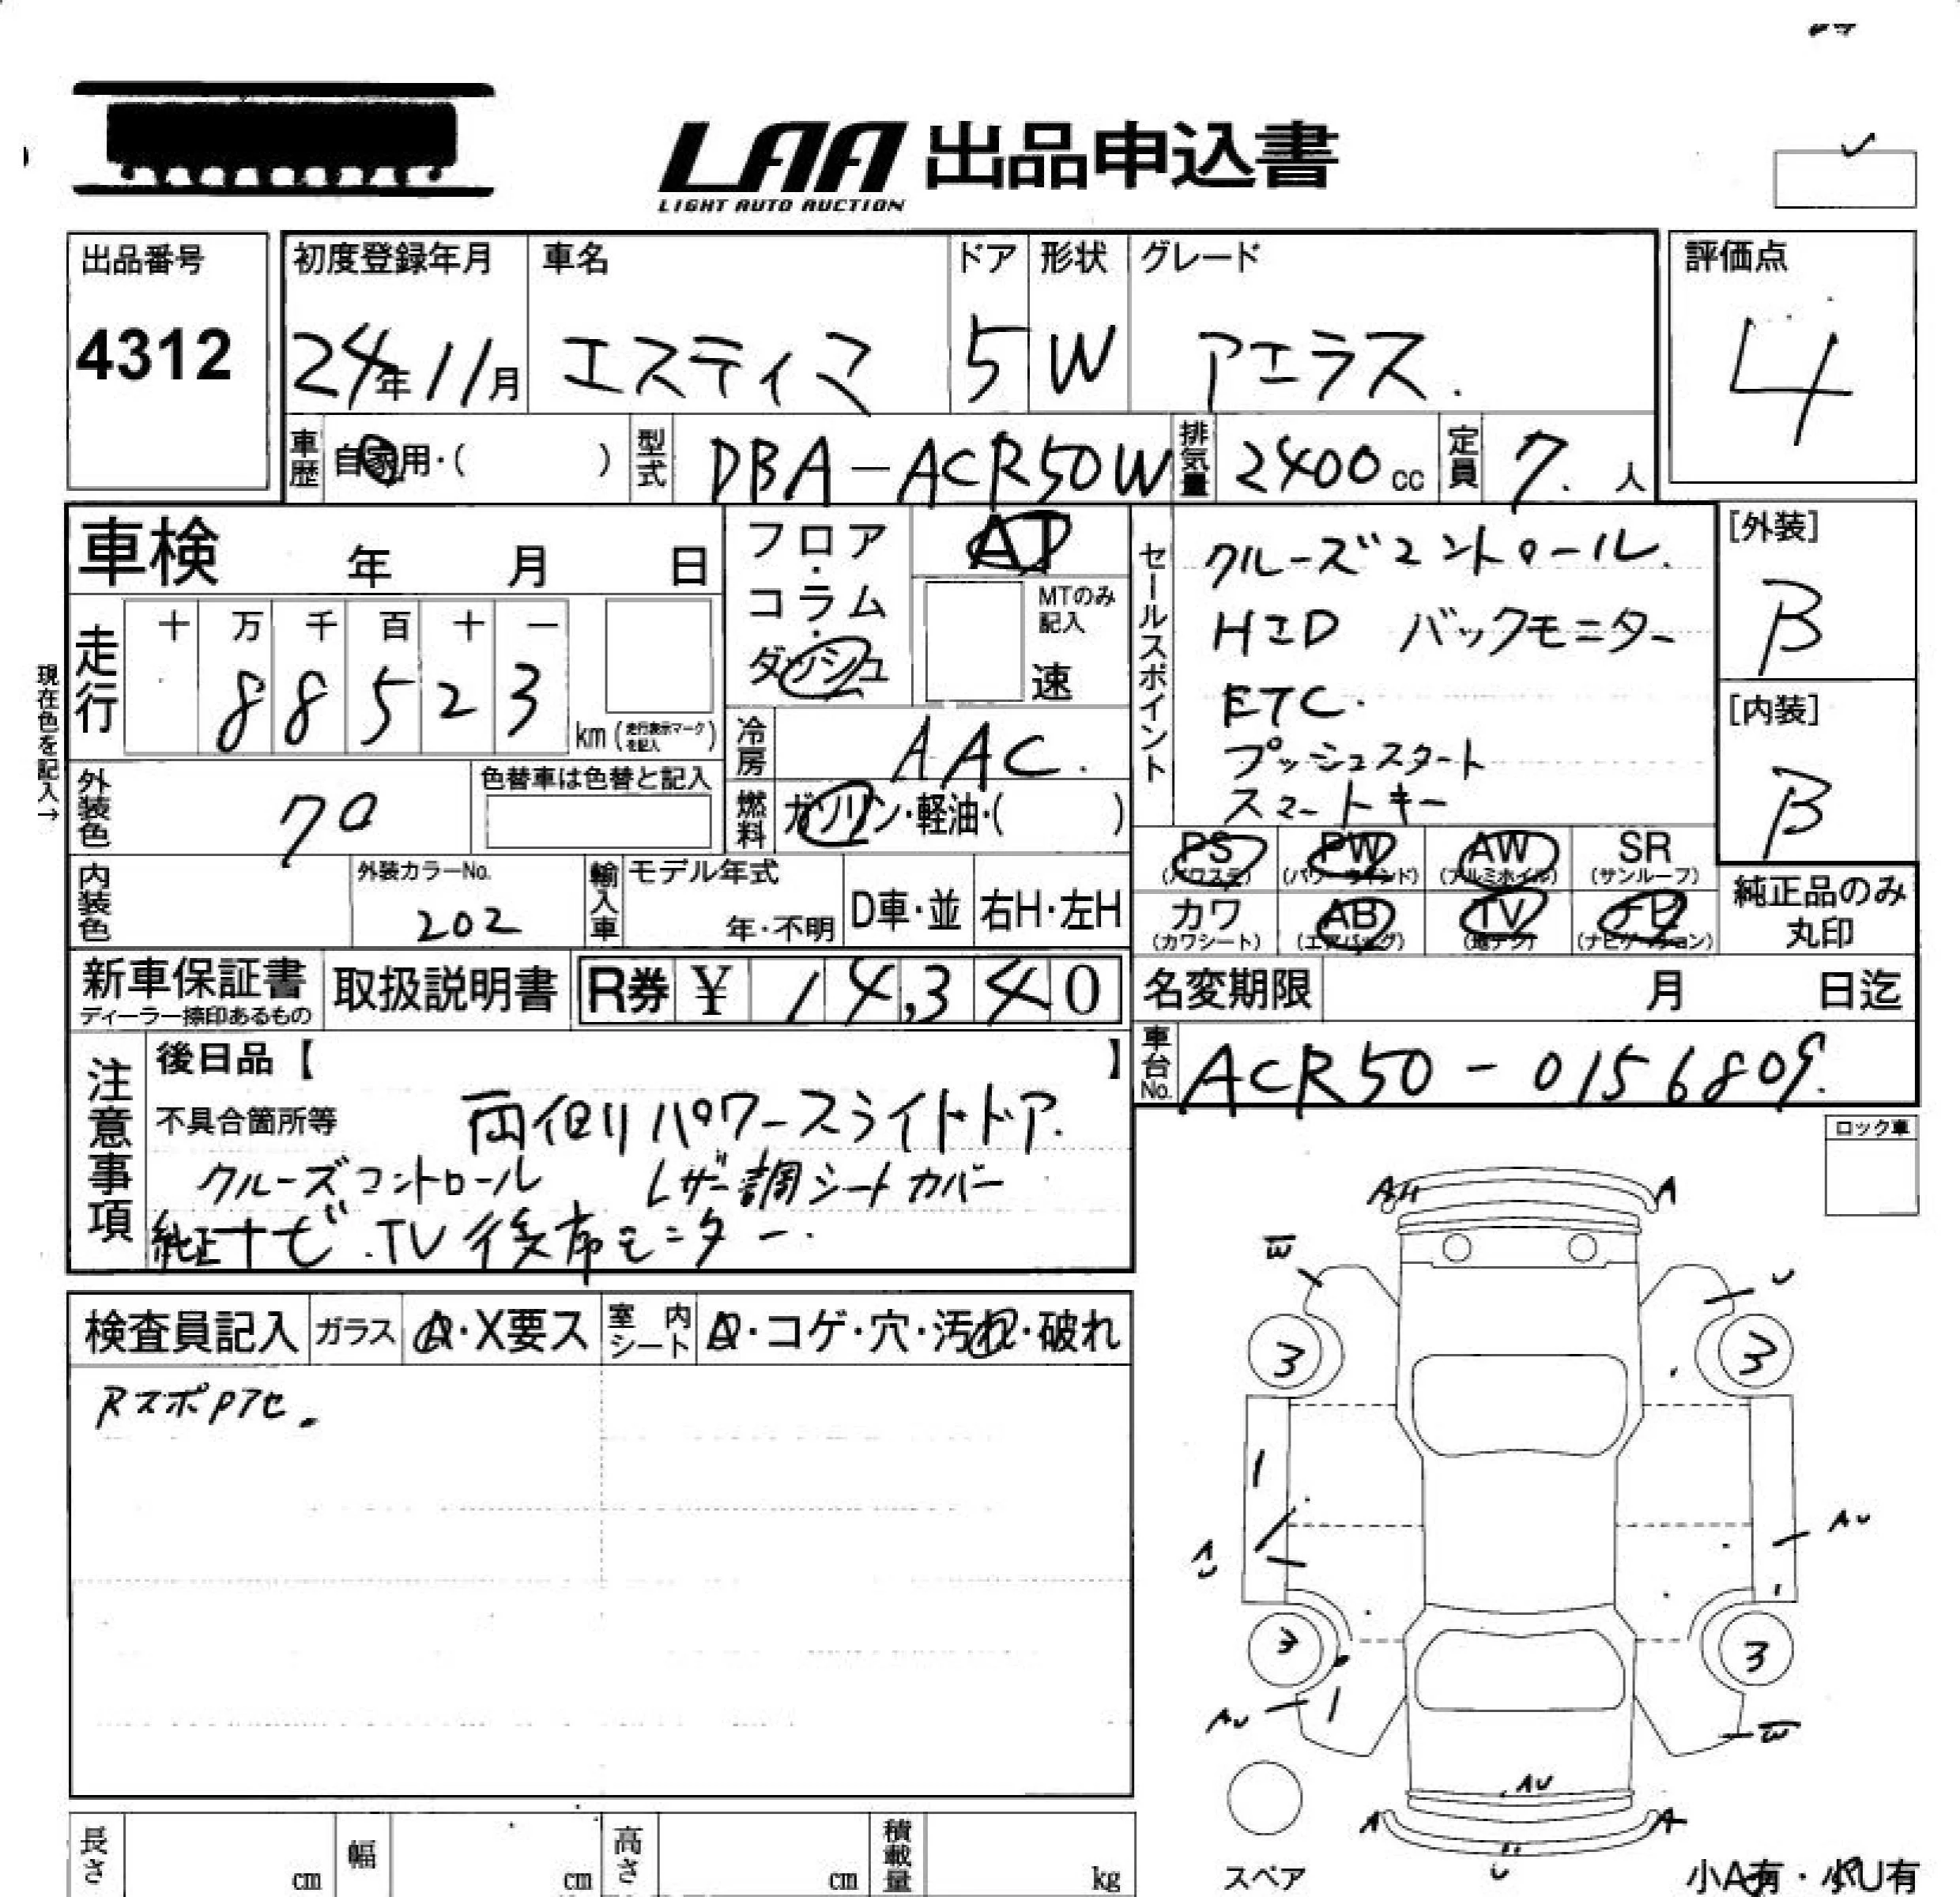 LAA 出品申込書
LIGHT AUTO AUCTION
出品番号
4312
初度登録年月
24年11月
車名
エスティマ
ドア
5
形状
W
グレード
アエラス.
評価点
4
車歴
自家用・( )
型式
DBA-ACR50W
排気量
2400cc
定員
7.人
車検 年 月 日
フロア・コラム・ダッシュ
AT
MTのみ記入
速
セールスポイント
クルーズコントロール.
HID バックモニター
ETC.
プッシュスタート
スマートキー
[外装]
B
[内装]
B
現在色を記入→
走行
十 万 千 百 十 一
8 8 5 2 3
km(走行表示マークを記入)
冷房
AAC.
燃料
ガソリン・軽油・( )
外装色
色替車は色替と記入
内装色
外装カラーNo.
202
輸入車
モデル年式
年・不明
D車・並
右H・左H
PS PW AW SR
(パワステ) (パワーウインド) (アルミホイル) (サンルーフ)
カワ AB TV
(カワシート) (エアバッグ) (地デジ) (ナビゲーション)
純正品のみ
丸印
新車保証書
ディーラー捺印あるもの
取扱説明書
R券 ¥ 14,340
名変期限 月 日迄
車台No.
ACR50-0156809.
注意事項
後日品【 】
不具合箇所等
両側パワースライドドア.
クルーズコントロール レザー調シートカバー
純正ナビ.TV 後席モニター.
ロック車
検査員記入
ガラス
A・X要ス
室内シート
A・コゲ・穴・汚れ・破れ
A A
W U
3 3
AU
3 3
AU W
AU
A A
U
スペア
小A有・小U有
長さ cm
幅 cm
高さ cm
積載量 kg